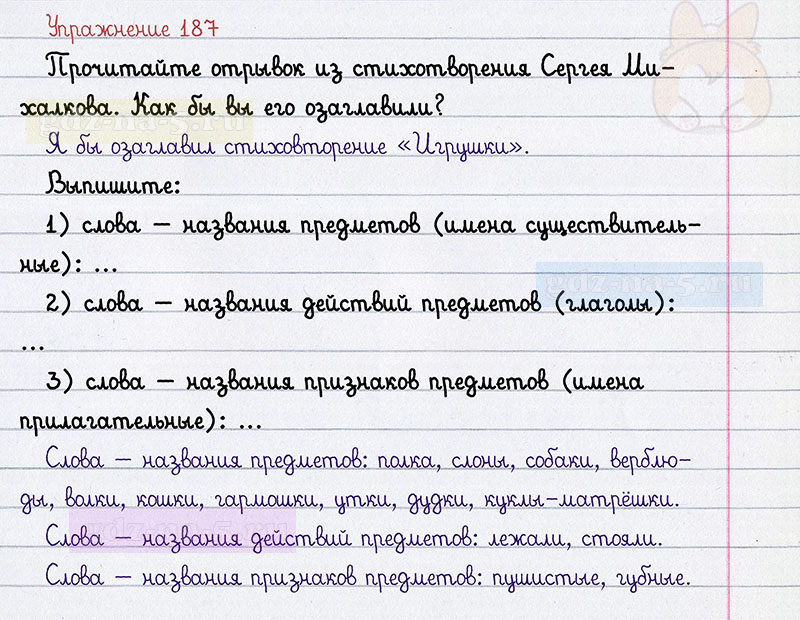 Упражнение 187
Прочитайте отрывок из стихотворения Сергея Ми-
халкова. Как бы вы его озаглавили?
gdz-na-5.ru
Я бы озаглавил стиховторение «Игрушки».
Выпишите:
1) слова — названия предметов (имена существитель-
ные): ...
gdz-na-5.ru
2) слова — названия действий предметов (глаголы):
...
3) слова — названия признаков предметов (имена
прилагательные): ...
Слова — названия предметов: полка, слоны, собаки, верблю-
ды, волки, кошки, гармошки, утки, дудки, куклы-матрёшки.
gdz-na-5.ru
Слова — названия действий предметов: лежали, стояли.
Слова — названия признаков предметов: пушистые, губные.